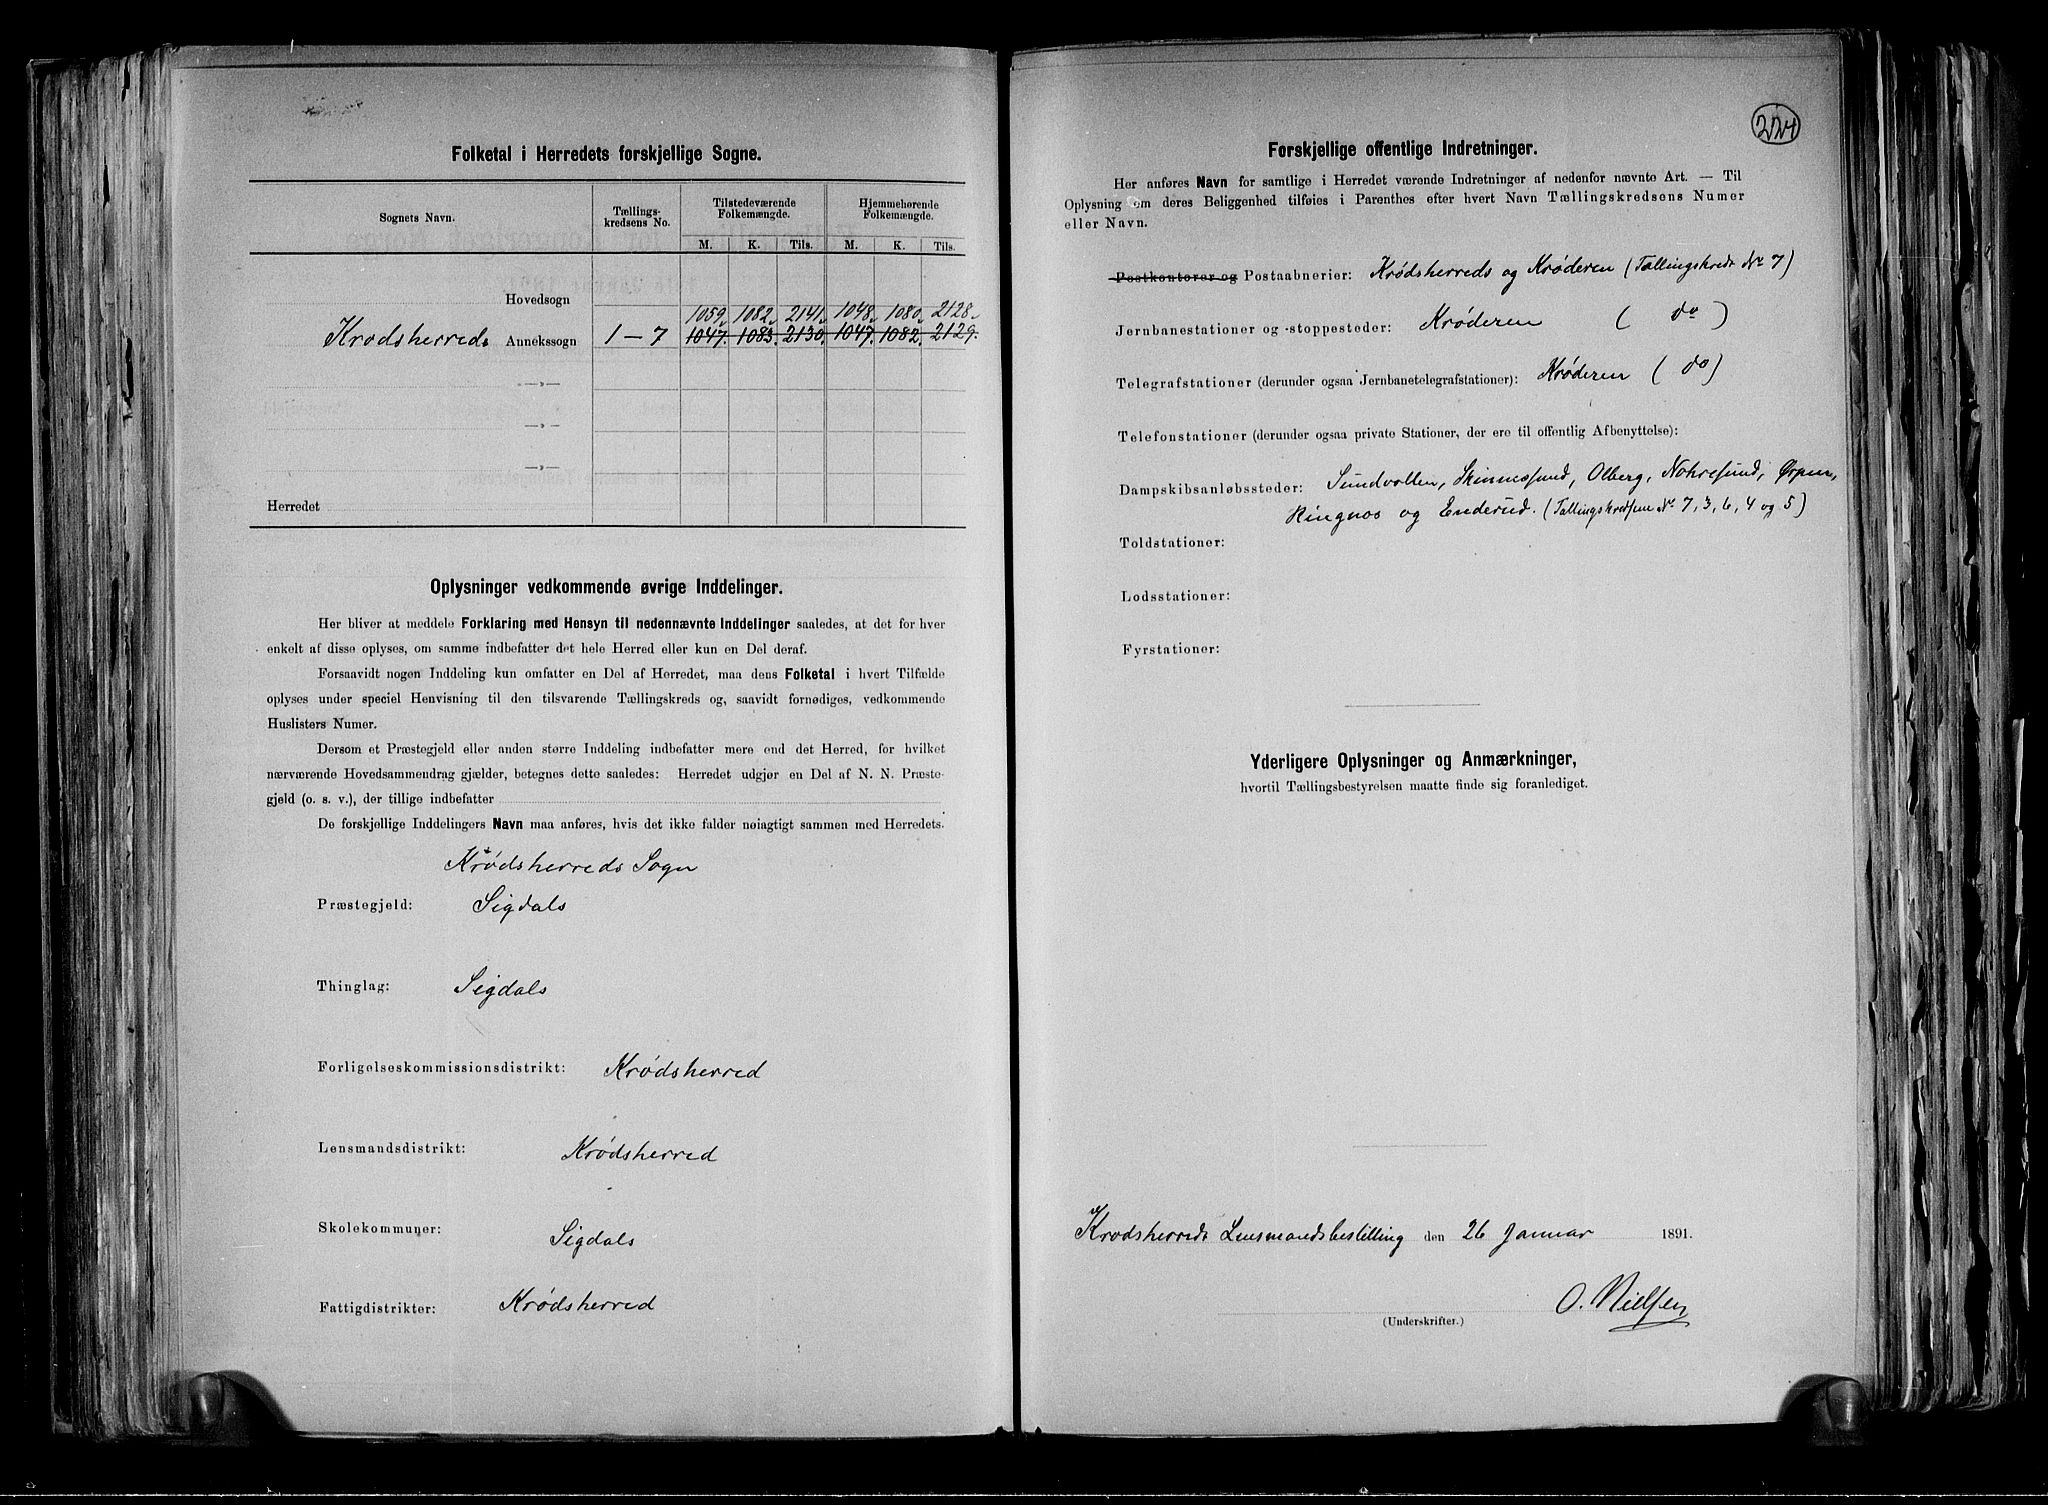 Folketal i Herredets forskjellige Sogne.
Sognets Navn. Tællings- kredsens No. Tilstedeværende Folkemængde. Hjemmehørende Folkemængde.
M. K. Tils. M. K. Tils.
Hovedsogn
1059 1082 2141 1048 1080 2128
Krødsherreds Annekssogn 1-7 1047. 1083. 2130. 1047. 1082. 2129.
-„-
-„-
-„-
Herredet
Oplysninger vedkommende øvrige Inddelinger.
Her bliver at meddele Forklaring med Hensyn til nedennævnte Inddelinger saaledes, at det for hver
enkelt af disse oplyses, om samme indbefatter det hele Herred eller kun en Del deraf.
Forsaavidt nogen Inddeling kun omfatter en Del af Herredet, maa dens Folketal i hvert Tilfælde
oplyses under speciel Henvisning til den tilsvarende Tællingskreds og, saavidt fornødiges, vedkommende
Huslisters Numer.
Dersom et Præstegjeld eller anden større Inddeling indbefatter mere end det Herred, for hvilket
nærværende Hovedsammendrag gjælder, betegnes dette saaledes: Herredet udgjør en Del af N. N. Præste-
gjeld (o. s. v.), der tillige indbefatter
De forskjellige Inddelingers Navn maa anføres, hvis det ikke falder nøiagtigt sammen med Herredets.
Krødsherreds Sogn
Præstegjeld: Sigdals
Thinglag: Sigdals
Forligelseskommissionsdistrikt: Krødsherred
Lensmandsdistrikt: Krødsherred
Skolekommuner: Sigdals
Fattigdistrikter: Krødsherred
224
Forskjellige offentlige Indretninger.
Her anføres Navn for samtlige i Herredet værende Indretninger af nedenfor nævnte Art. — Til
Oplysning om deres Beliggenhed tilføies i Parenthes efter hvert Navn Tællingskredsens Numer
eller Navn.
Postkontorer og Postaabnerier: Krødsherreds og Krøderen (Tællingskreds No 7)
Jernbanestationer og -stoppesteder: Krøderen ( do )
Telegrafstationer (derunder ogsaa Jernbanetelegrafstationer): Krøderen ( do )
Telefonstationer (derunder ogsaa private Stationer, der ere til offentlig Afbenyttelse):
Dampskibsanløbssteder: Sundvollen, Skinnesund, Olberg, Nohresund, Ørpen,
Ringnos og Enderud. (Tællingskredsene No 7, 3, 6, 4 og 5)
Toldstationer:
Lodsstationer:
Fyrstationer:
Yderligere Oplysninger og Anmærkninger,
hvortil Tællingsbestyrelsen maatte finde sig foranlediget.
Krødsherreds Lensmandsbestilling den 26 Januar 1891.
O. Nielsen
(Underskrifter.)